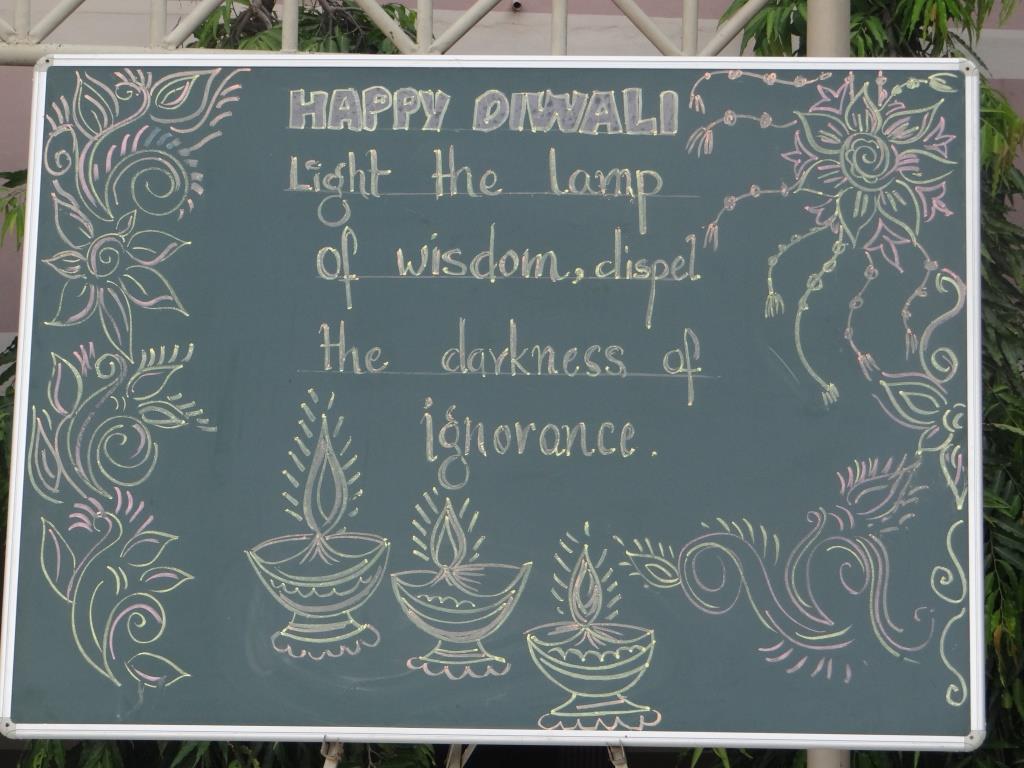 HAPPY DIWALI
Light the lamp
of wisdom, dispel
the darkness of
ignorance.